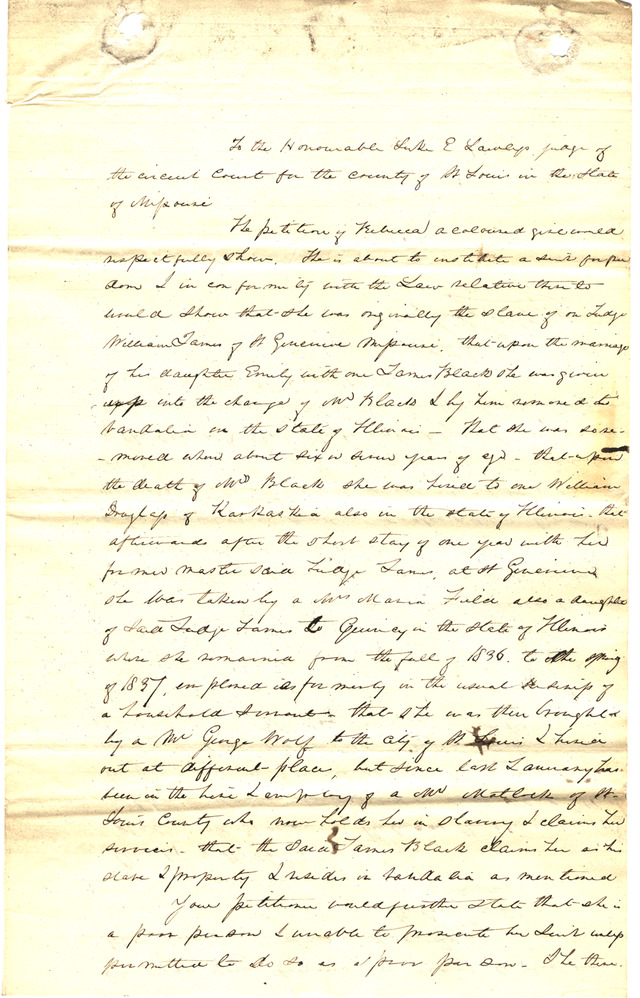 To the Honourable Luke E Lawless judge of
the circuit Court for the county of St Louis in the State
of Missouri
The petition of Rebecca a coloured girl would
respectfully show. She is about to institute a suit for free
dom & in conformity with the Law relative thereto
would show that she was originally the slave of on Judge
William James of St Genevieve Missouri, that upon the marriage
of his daughter Emily with one James Black she was given
into the charge of Mr Black & by him removed to
Vandalia in the State of Illinois — That she was so re-
-moved when about six or seven years of age - that upon
the death of Mrs Black she was hired to one William
of Kaskaskia also in the state of Illinois. that
afterwards after the short stay of one year with her
former master said Judge James, at St Genevieve
she was taken by a Mrs Maria Field also a daughter
of Said Judge James to Quincy in the State of Illinois
where she remained from the fall of 1836. to the spring
of 1837, employed as formerly in the usual of
a household servant - that she was then brought
by a Mr George Wolf to the city of St Louis & hired
out at different place, but since last January has
been in the hire & employ of a Mr Matlock of St.
Louis County who now holds her in slavery & claims her
services - that the Said James Black claims her as his
slave & property & resides in Vandalia as mentioned
Your petitioner would further state that she is
a poor person & unable to prosecute her Suit unless
permitted to do so as a poor person - She there